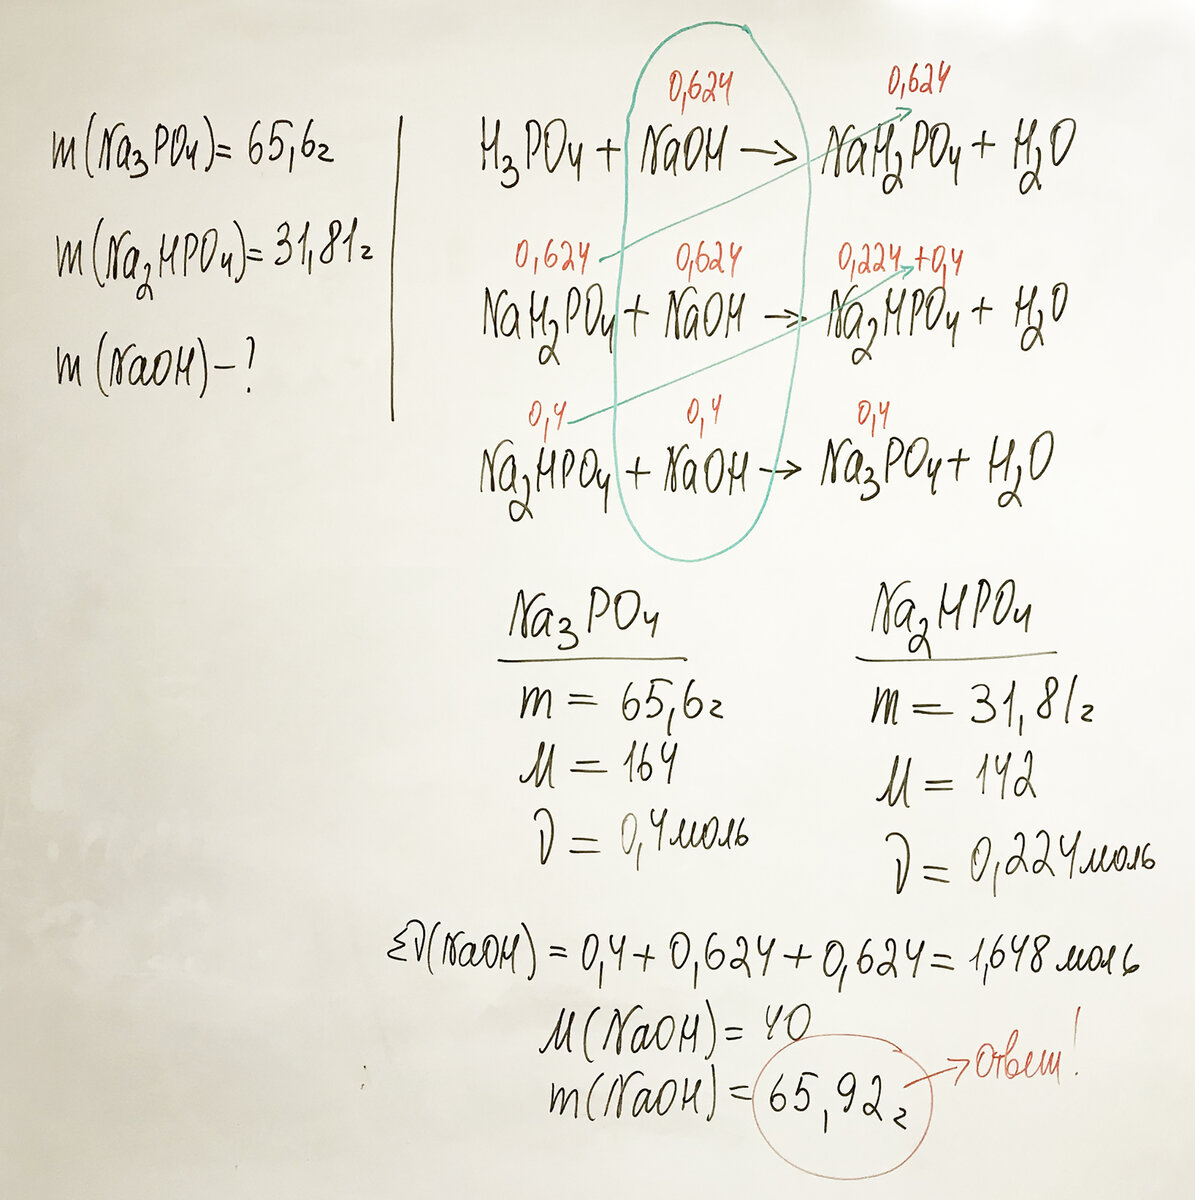 m(Na₃PO₄)= 65,6г
m(Na₂HPO₄)= 31,81г
m(NaOH)-?
0,624 0,624
H₃PO₄ + NaOH → NaH₂PO₄ + H₂O
0,624 0,624 0,224 +0,4
NaH₂PO₄ + NaOH → Na₂HPO₄ + H₂O
0,4 0,4 0,4
Na₂HPO₄ + NaOH → Na₃PO₄ + H₂O
Na₃PO₄
m = 65,6г
M = 164
ν = 0,4моль
Na₂HPO₄
m = 31,81г
M = 142
ν = 0,224моль
Σν(NaOH) = 0,4 + 0,624 + 0,624 = 1,648 моль
M(NaOH) = 40
m(NaOH) = 65,92г → ответ!